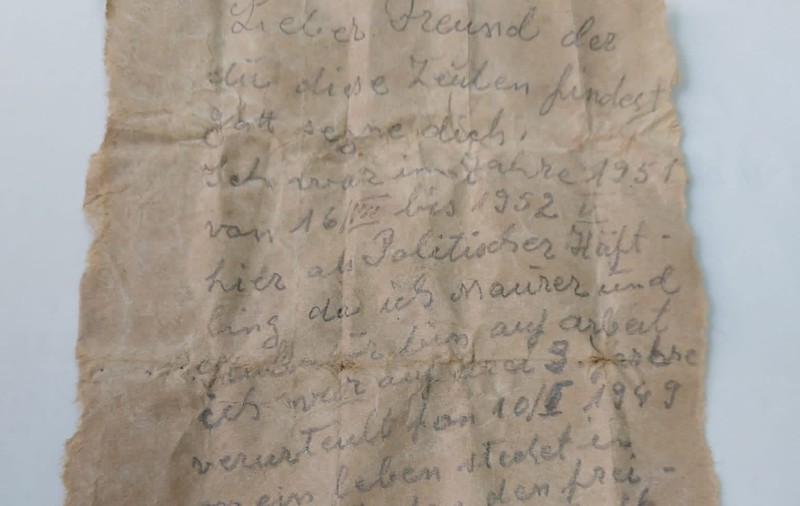 Lieber Freund der
du diese Zeulen findest
Gott segne dich.
Ich war im Jahre 1951
von 16/VII bis 1952 V
hier als Politischer Häft-
ling da ich Maurer und
bin auf arbeit
ich war auf 3. Jahre
verurteult fon 10/I 1949
mein leben stehet in
den frei-